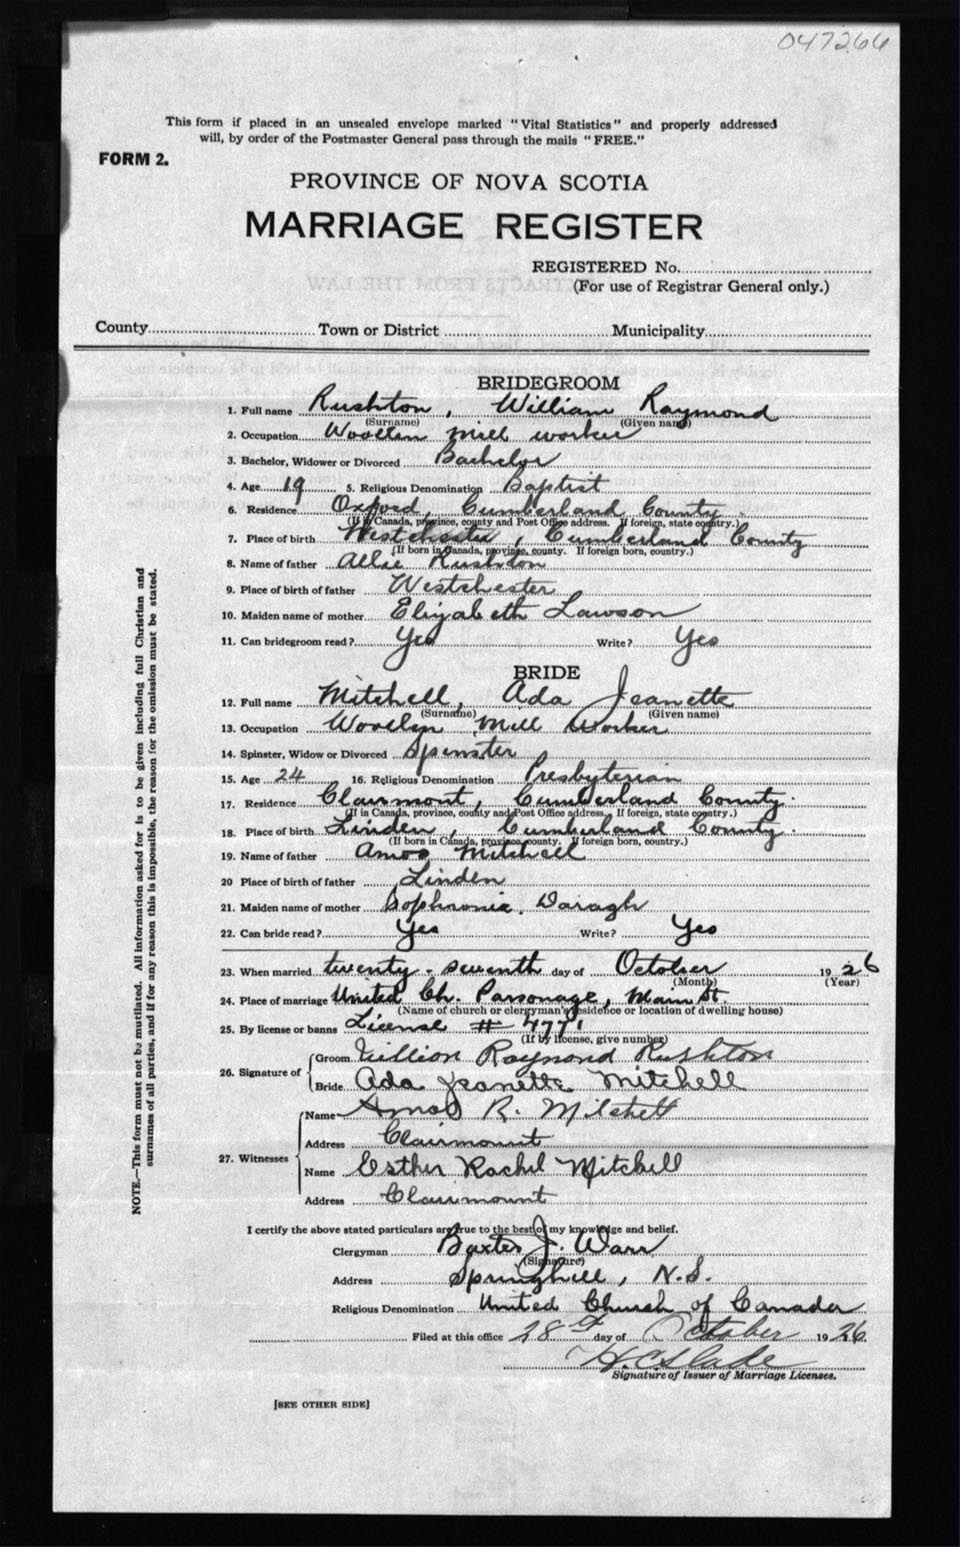 047266
This form if placed in an unsealed envelope marked "Vital Statistics" and properly addressed
will, by order of the Postmaster General pass through the mails "FREE."
FORM 2.
PROVINCE OF NOVA SCOTIA
MARRIAGE REGISTER
REGISTERED No.
(For use of Registrar General only.)
County Town or District Municipality
BRIDEGROOM
1. Full name Rushton, William Raymond
(Surname) (Given name)
2. Occupation Woollen mill worker
3. Bachelor, Widower or Divorced Bachelor
4. Age 19 5. Religious Denomination Baptist
6. Residence Oxford, Cumberland County.
(If in Canada, province, county and Post Office address. If foreign, state country.)
7. Place of birth Westchester, Cumberland County
(If born in Canada, province, county. If foreign born, country.)
8. Name of father Allie Rushton
9. Place of birth of father Westchester
10. Maiden name of mother Elizabeth Lawson
11. Can bridegroom read? Yes Write? Yes
BRIDE
12. Full name Mitchell, Ada Jeanette
(Surname) (Given name)
13. Occupation Woollen Mill Worker
14. Spinster, Widow or Divorced Spinster
15. Age 24 16. Religious Denomination Presbyterian
17. Residence Clairmont, Cumberland County.
(If in Canada, province, county and Post Office address, If foreign, state country.)
18. Place of birth Linden, Cumberland County.
(If born in Canada, province county. If foreign born, country.)
19. Name of father Amos Mitchell
20 Place of birth of father Linden
21. Maiden name of mother Sophronia Daragh
22. Can bride read? Yes Write? Yes
23. When married twenty-seventh day of October 1926
(Month) (Year)
24. Place of marriage United Ch. Parsonage, Main St.
(Name of church or clergyman's residence or location of dwelling house)
25. By license or banns License # 4771
(If by license, give number)
26. Signature of
Groom William Raymond Rushton
Bride Ada Jeanette Mitchell
27. Witnesses
Name Amos R. Mitchell
Address Clairmount
Name Esther Rachel Mitchell
Address Clairmount
I certify the above stated particulars are true to the best of my knowledge and belief.
Clergyman Baxter J. Warr
(Signature)
Address Springhill, N.S.
Religious Denomination United Church of Canada
Filed at this office 28th day of October 1926
H.C. Slade
Signature of Issuer of Marriage Licenses.
[SEE OTHER SIDE]
NOTE.—This form must not be mutilated. All information asked for is to be given including full Christian and
surnames of all parties, and if for any reason this is impossible, the reason for the omission must be stated.